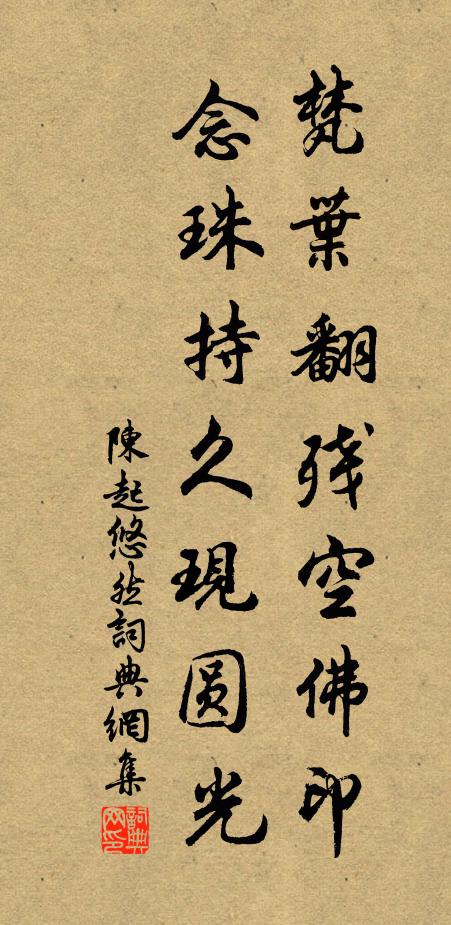 梵葉翻残空佛印
念珠持久現圓光
陳起悠然詞典網集
詞典网印